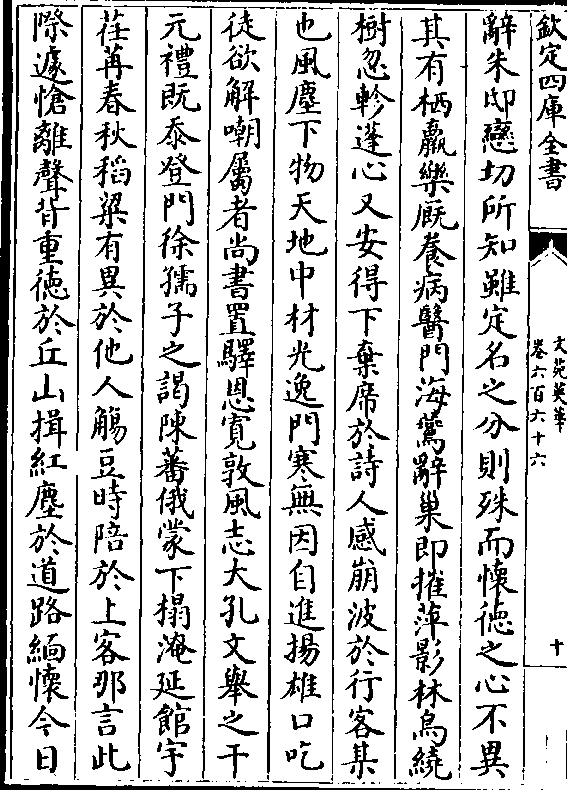 欽定四庫全書
文苑英華
卷六百六十六
十
辭朱邸戀切所知雖定名之分則殊而懷德之心不異
其有栖羸樂厩養病醫門海鷰辭巢即摧萍影林烏繞
樹忽軫蓬心又安得下棄席於詩人感崩波於行客某
也風塵下物天地中材光逸門寒無因自進揚雄口吃
徒欲解嘲屬者尚書置驛恩寛敦風志大孔文舉之干
元禮既忝登門徐孺子之謁陳蕃俄蒙下榻淹延館宇
荏苒春秋稻粱有異於他人觴豆時陪於上客那言此
際遽愴離聲背重徳於丘山揖紅塵於道路緬懷今日